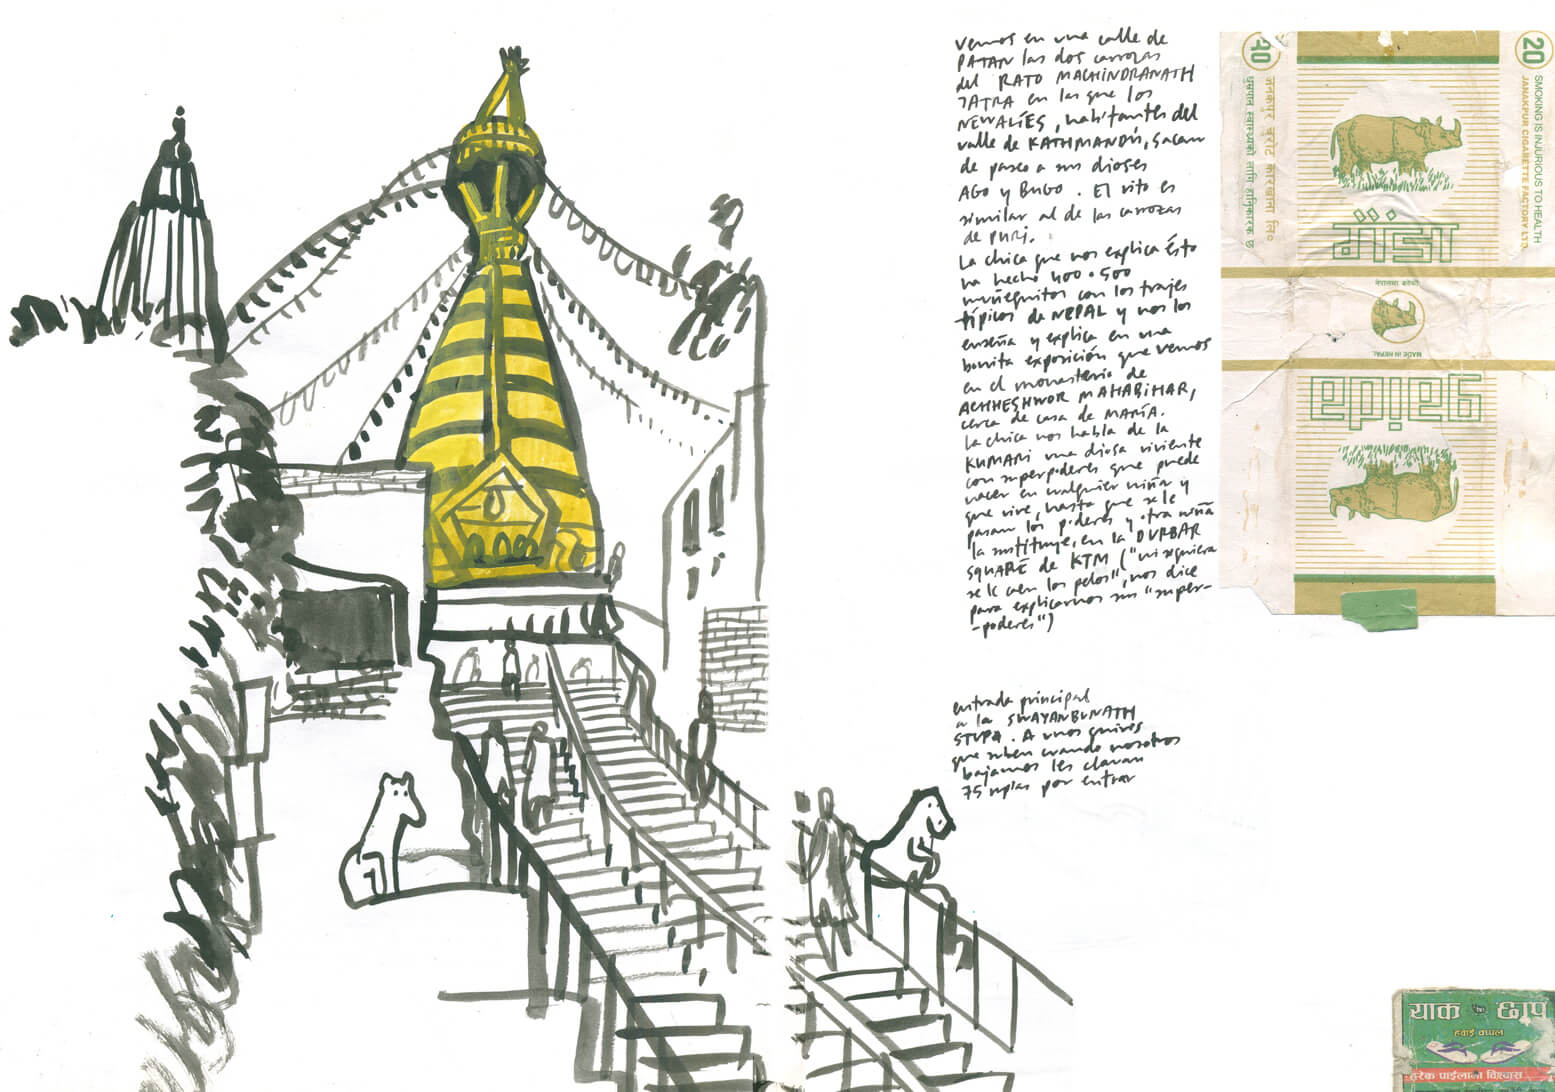 Vemos en una calle de
PATAN las dos carrozas
del RATO MACHINDRANATH
JATRA en las que los
NEWALÍES, habitantes del
valle de KATHMANDÚ, sacan
de paseo a sus dioses
AGO y BUGO. El rito es
similar al de las carrozas
de PURJ.
La chica que nos explica ésto
ha hecho 400 - 500
muñequitos con los trajes
típicos de NEPAL y nos los
enseña y explica en una
bonita exposición que vemos
en el monasterio de
ACHHESHWOR MAHABIHAR,
cerca de casa de MARÍA.
La chica nos habla de la
KUMARI una diosa viviente
con superpoderes que puede
nacer en cualquier niña y
que vive, hasta que se le
pasan los poderes y otra niña
la sustituye, en la DURBAR
SQUARE de KTM ("ni siquiera
se le caen los pelos", nos dice
para explicarnos sus "super-
-poderes")
entrada principal
a la SWAYANBUNATH
STUPA. A unos guiris
que suben cuando nosotros
bajamos les clavan
75 rupias por entrar
२०
जनकपुर चुरोट कारखाना लि०
धूम्रपान स्वास्थ्यको लागि हानिकारक छ
20
SMOKING IS INJURIOUS TO HEALTH
JANAKPUR CIGARETTE FACTORY LTD.
गैंडा
नेपालमा बनेको
MADE IN NEPAL
gaida
याक छाप
हवाई चप्पल
हरेक पाईलामा विश्वास